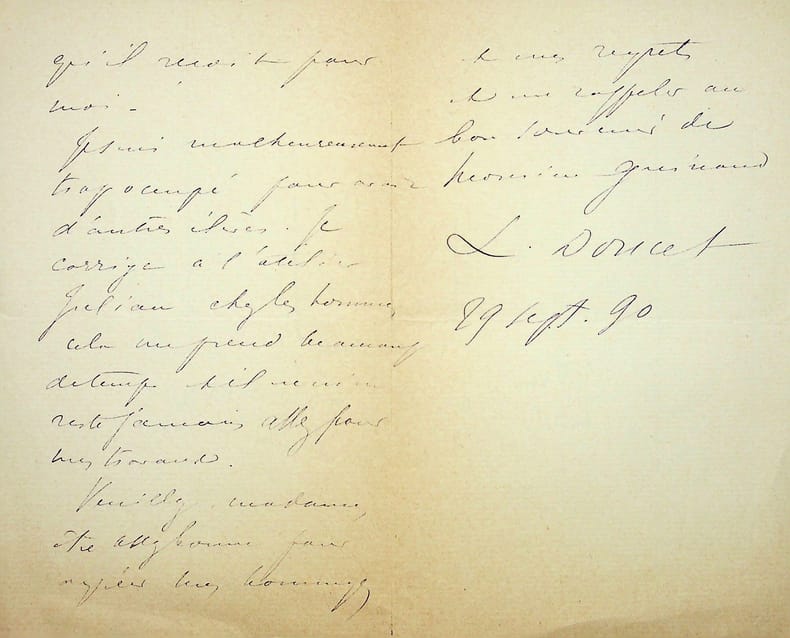 qu'il reçoit pour
moi.
Je suis malheureusement
trop occupé pour avoir
d'autres élèves. Je
corrige à l'atelier
Julian chez les hommes,
cela me prend beaucoup
de temps & il ne m'en
reste jamais assez pour
mes travaux.
Veuillez, madame,
être assez bonne pour
agréer mes hommages,
& mes regrets
& me rappeler au
bon souvenir de
Monsieur
L. Doucet
29 sept. 90